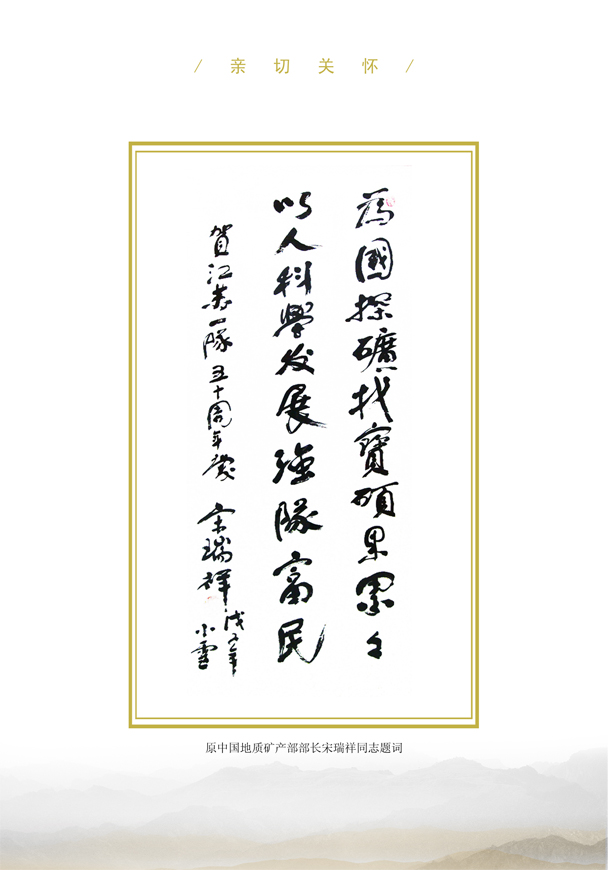 / 亲切关怀 /
為國探礦找寶碩果累々
以人科學发展強隊富民
賀江苏一隊五十周年慶
宋瑞祥
戊子年
小雪
原中国地质矿产部部长宋瑞祥同志题词